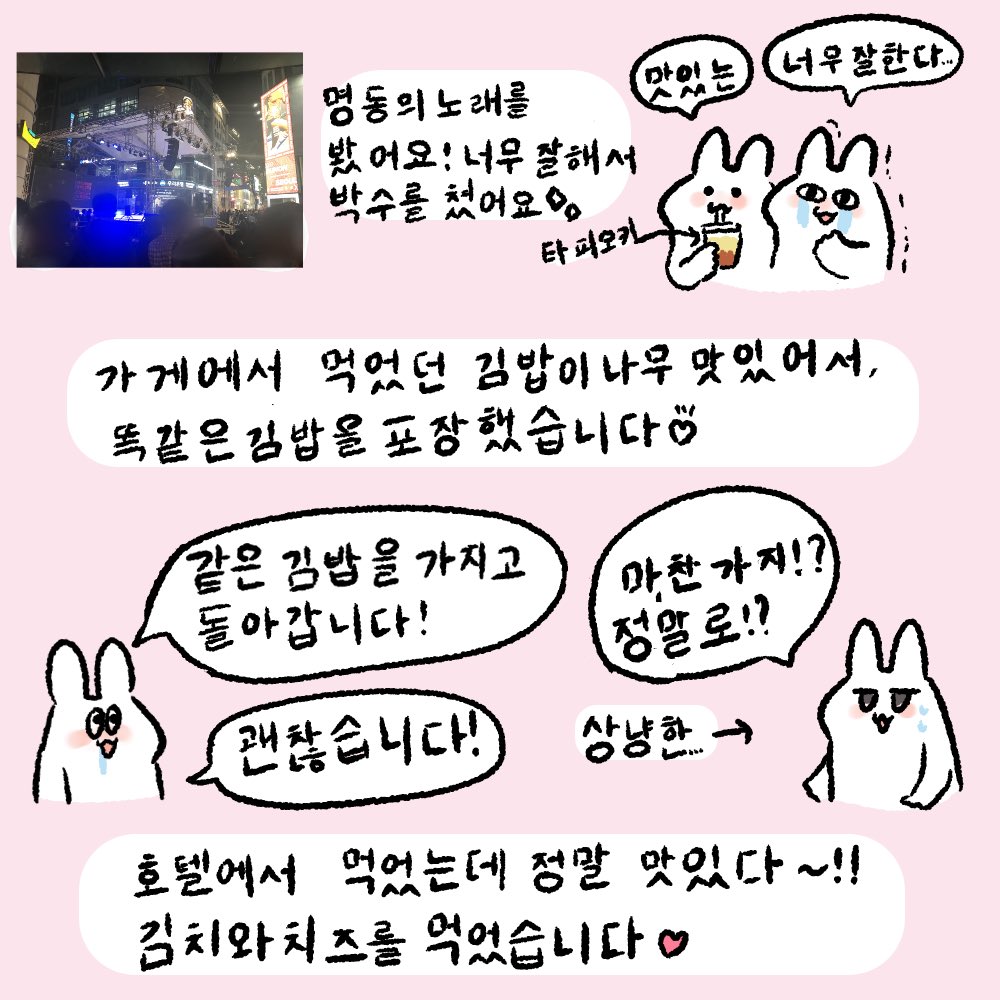 명동의 노래를
봤어요! 너무 잘해서
박수를 쳤어요
맛있는
너무 잘한다...
타피오카
가게에서 먹었던 김밥이 나무 맛있어서,
똑같은 김밥올 포장했습니다
같은 김밥을 가지고
돌아갑니다!
마찬가지!?
정말로!?
괜찮습니다!
상냥한...
호텔에서 먹었는데 정말 맛있다~!!
김치와치즈를 먹었습니다